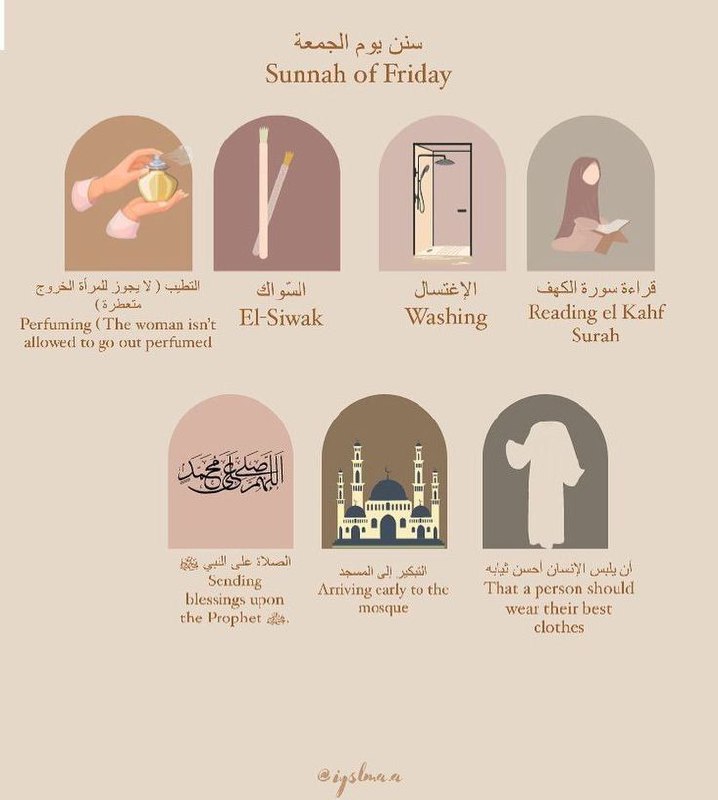 سنن يوم الجمعة
Sunnah of Friday
التطيب ( لا يجوز للمرأة الخروج
متعطرة )
Perfuming (The woman isn't
allowed to go out perfumed
السّواك
El-Siwak
الإغتسال
Washing
قراءة سورة الكهف
Reading el Kahf
Surah
اللهم صل على محمد
الصلاة على النبي ﷺ
Sending
blessings upon
the Prophet ﷺ.
التبكير إلى المسجد
Arriving early to the
mosque
أن يلبس الإنسان أحسن ثيابه
That a person should
wear their best
clothes